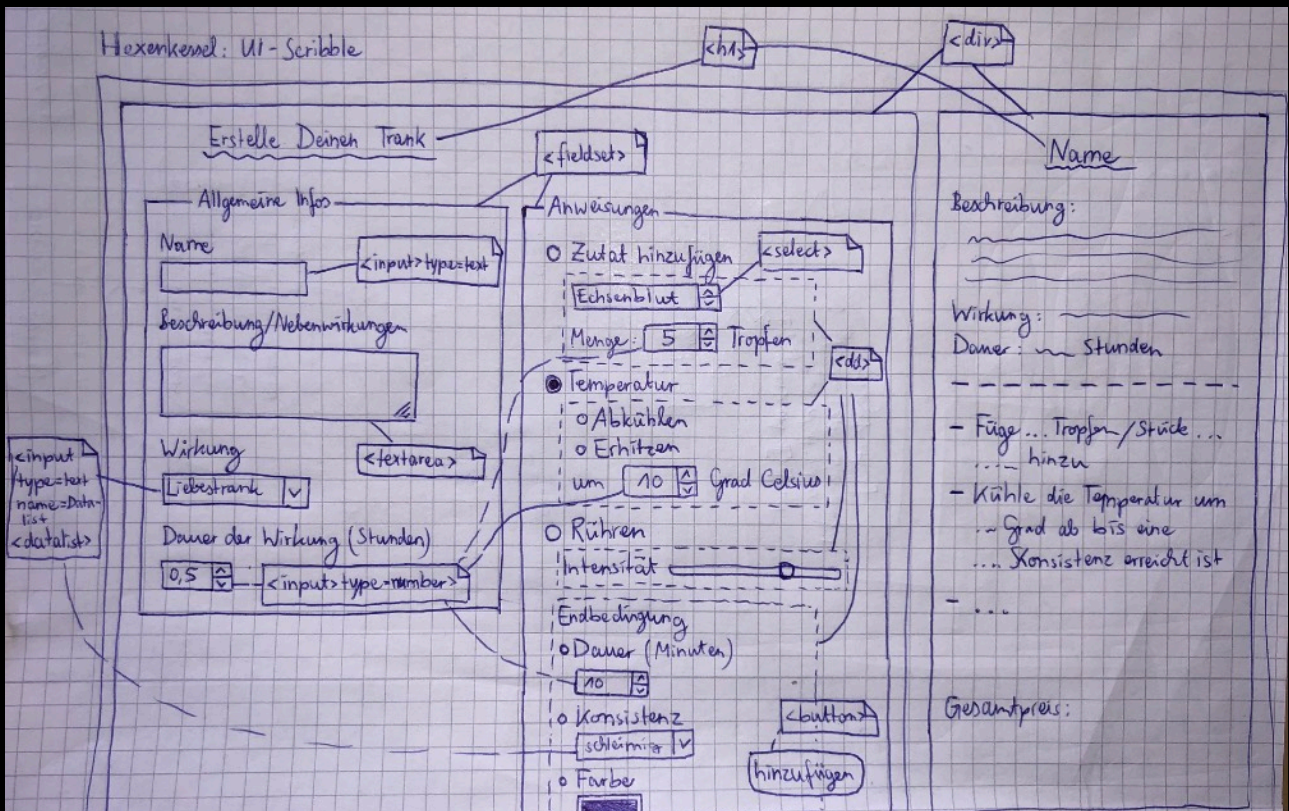 Hexenkessel: UI-Scribble
<h1>
<div>
Erstelle Deinen Trank
<fieldset>
Allgemeine Infos
Name
<input> type=text
Beschreibung/Nebenwirkungen
<textarea>
Wirkung
Liebestrank
<input
type=text
name=Data-
list
<datalist>
Dauer der Wirkung (Stunden)
0,5
<input> type=number>
Anweisungen
Zutat hinzufügen
<select>
Echsenblut
Menge: 5 Tropfen
<dd>
Temperatur
Abkühlen
Erhitzen
um 10 Grad Celsius
Rühren
Intensität
Endbedingung
Dauer (Minuten)
10
Konsistenz
schleimig
Farbe
<button>
hinzufügen
Name
Beschreibung:
Wirkung:
Dauer: Stunden
- Füge ... Tropfen/Stück ...
.... hinzu
- Kühle die Temperatur um
... Grad ab bis eine
.... Konsistenz erreicht ist
- ...
Gesamtpreis: